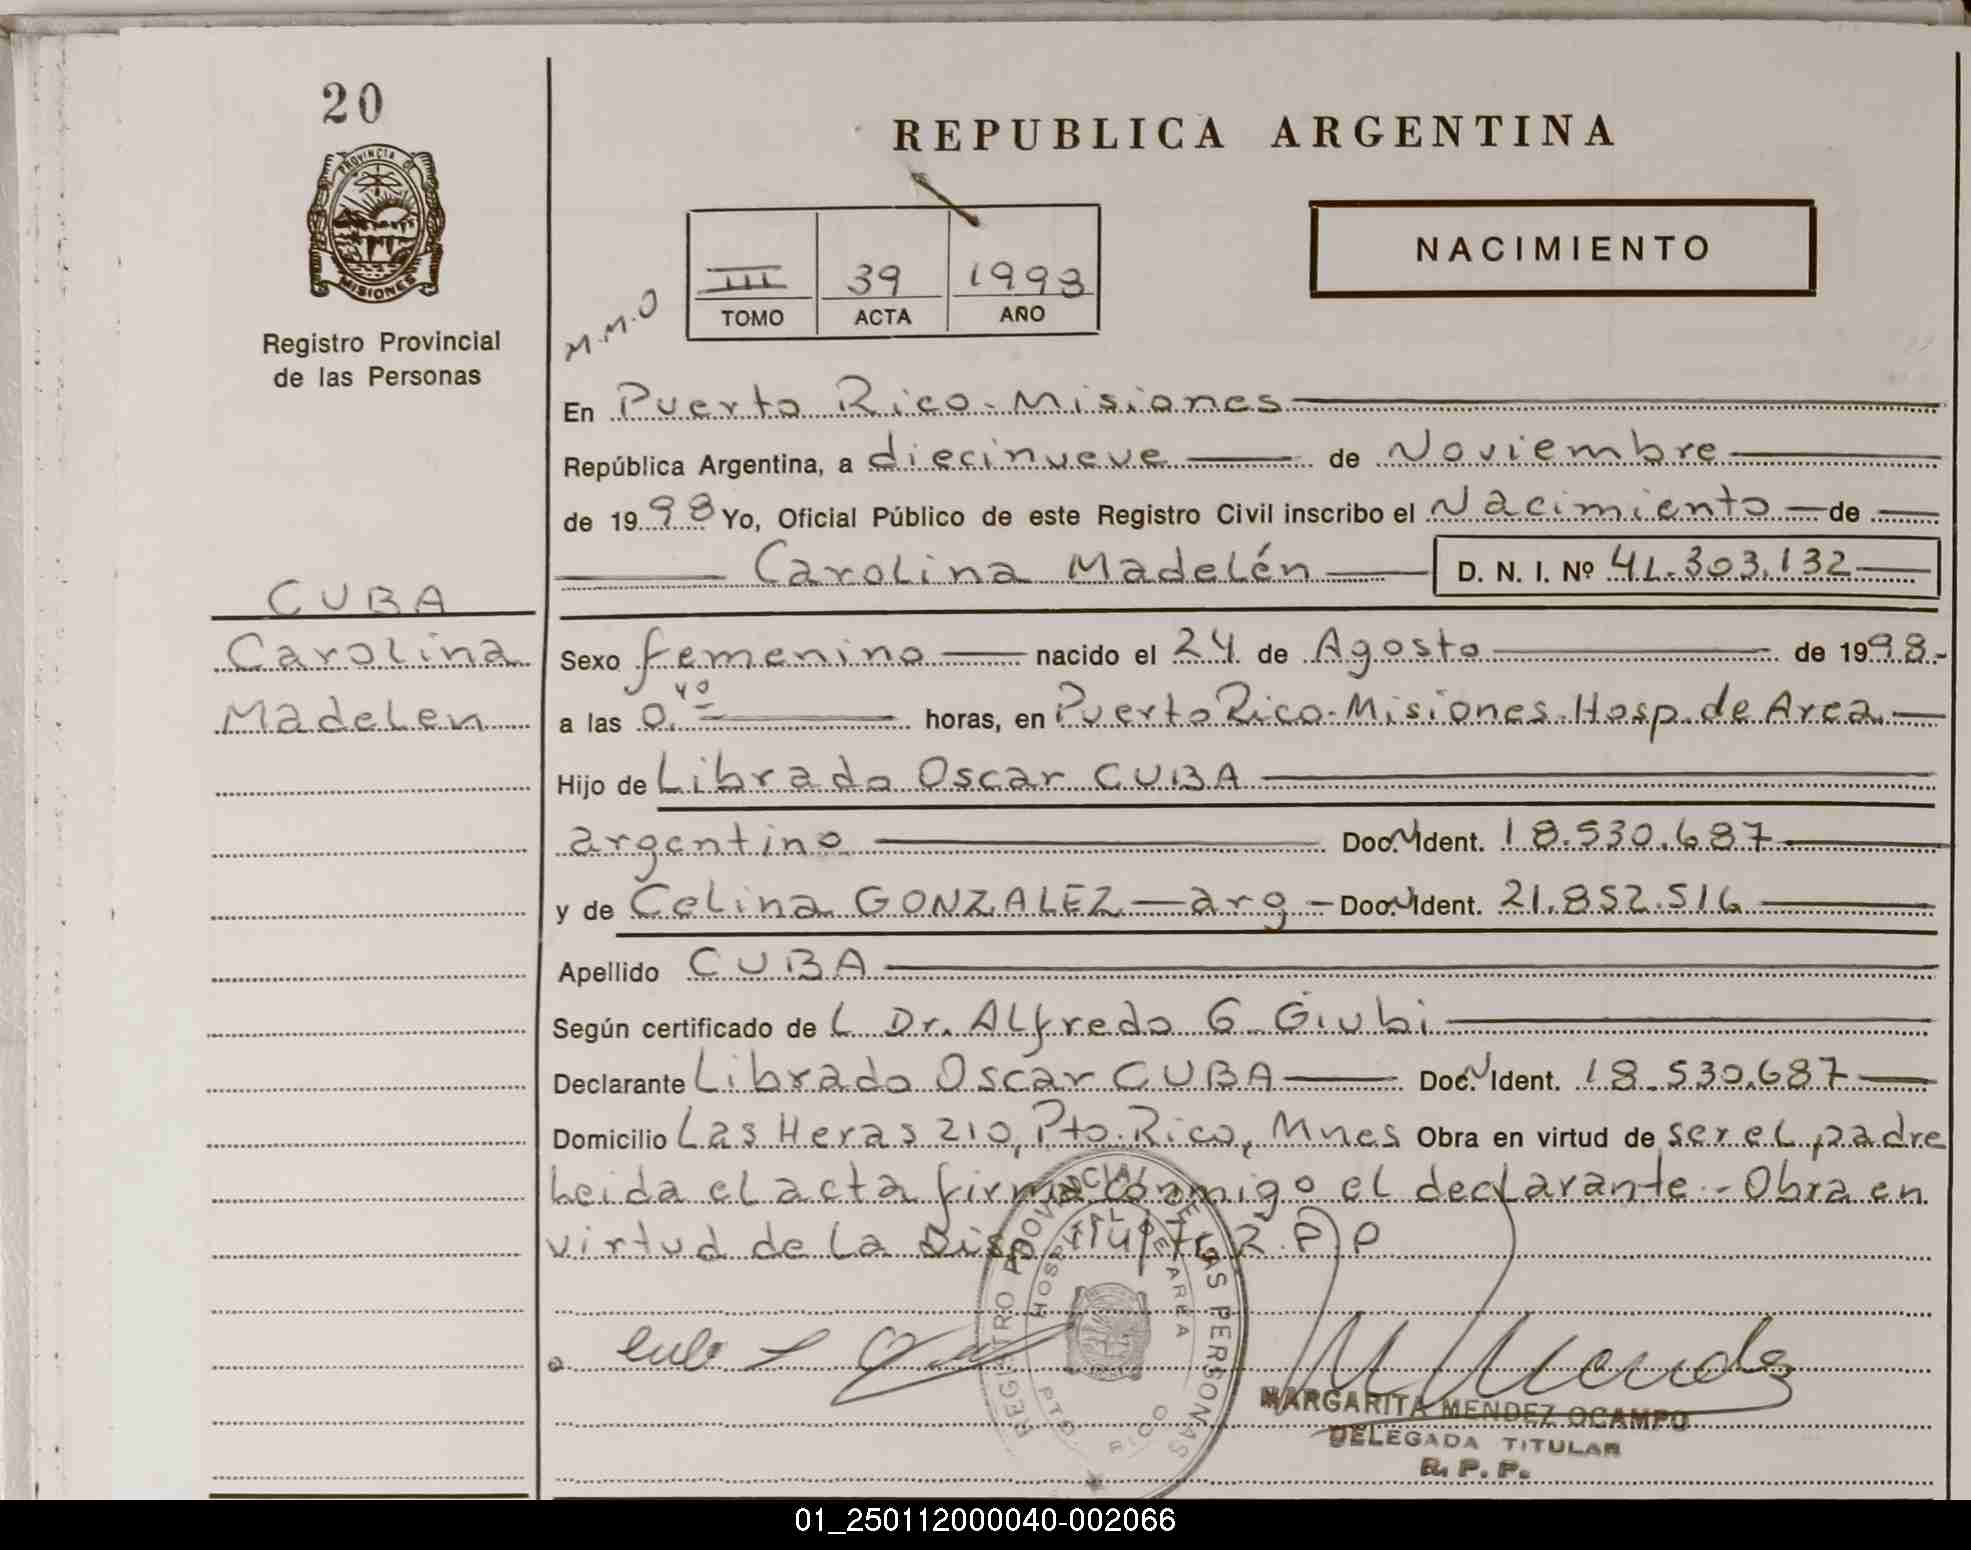 20
PROVINCIA DE
MISIONES
Registro Provincial
de las Personas
REPUBLICA ARGENTINA
NACIMIENTO
III 39 1998
TOMO ACTA AÑO
M.M.O
En Puerto Rico-Misiones
República Argentina, a diecinueve de Noviembre
de 1998 Yo, Oficial Público de este Registro Civil inscribo el Nacimiento de
Carolina Madelén D. N. I. Nº 41.303.132
CUBA
Carolina
Madelen
Sexo femenino nacido el 24 de Agosto de 1998.-
a las 0.40 horas, en Puerto Rico-Misiones.Hosp.de Area
Hijo de Librado Oscar CUBA
argentino Doc.N Ident. 18.530.687
y de Celina GONZALEZ-arg-Doc.N Ident. 21.852.516
Apellido CUBA
Según certificado de L Dr. Alfredo G Giubi
Declarante Librado Oscar CUBA Doc.N Ident. 18.530.687
Domicilio Las Heras 210, Pto.Rico, Mnes Obra en virtud de ser el padre
Leida el acta firma conmigo el declarante.-Obra en
virtud de la Disp R.P.P
REGISTRO PROVINCIAL DE LAS PERSONAS
HOSPITAL DE AREA
PTO RICO
M Mendez
MARGARITA MENDEZ OCAMPO
DELEGADA TITULAR
R. P. P.
01_250112000040-002066